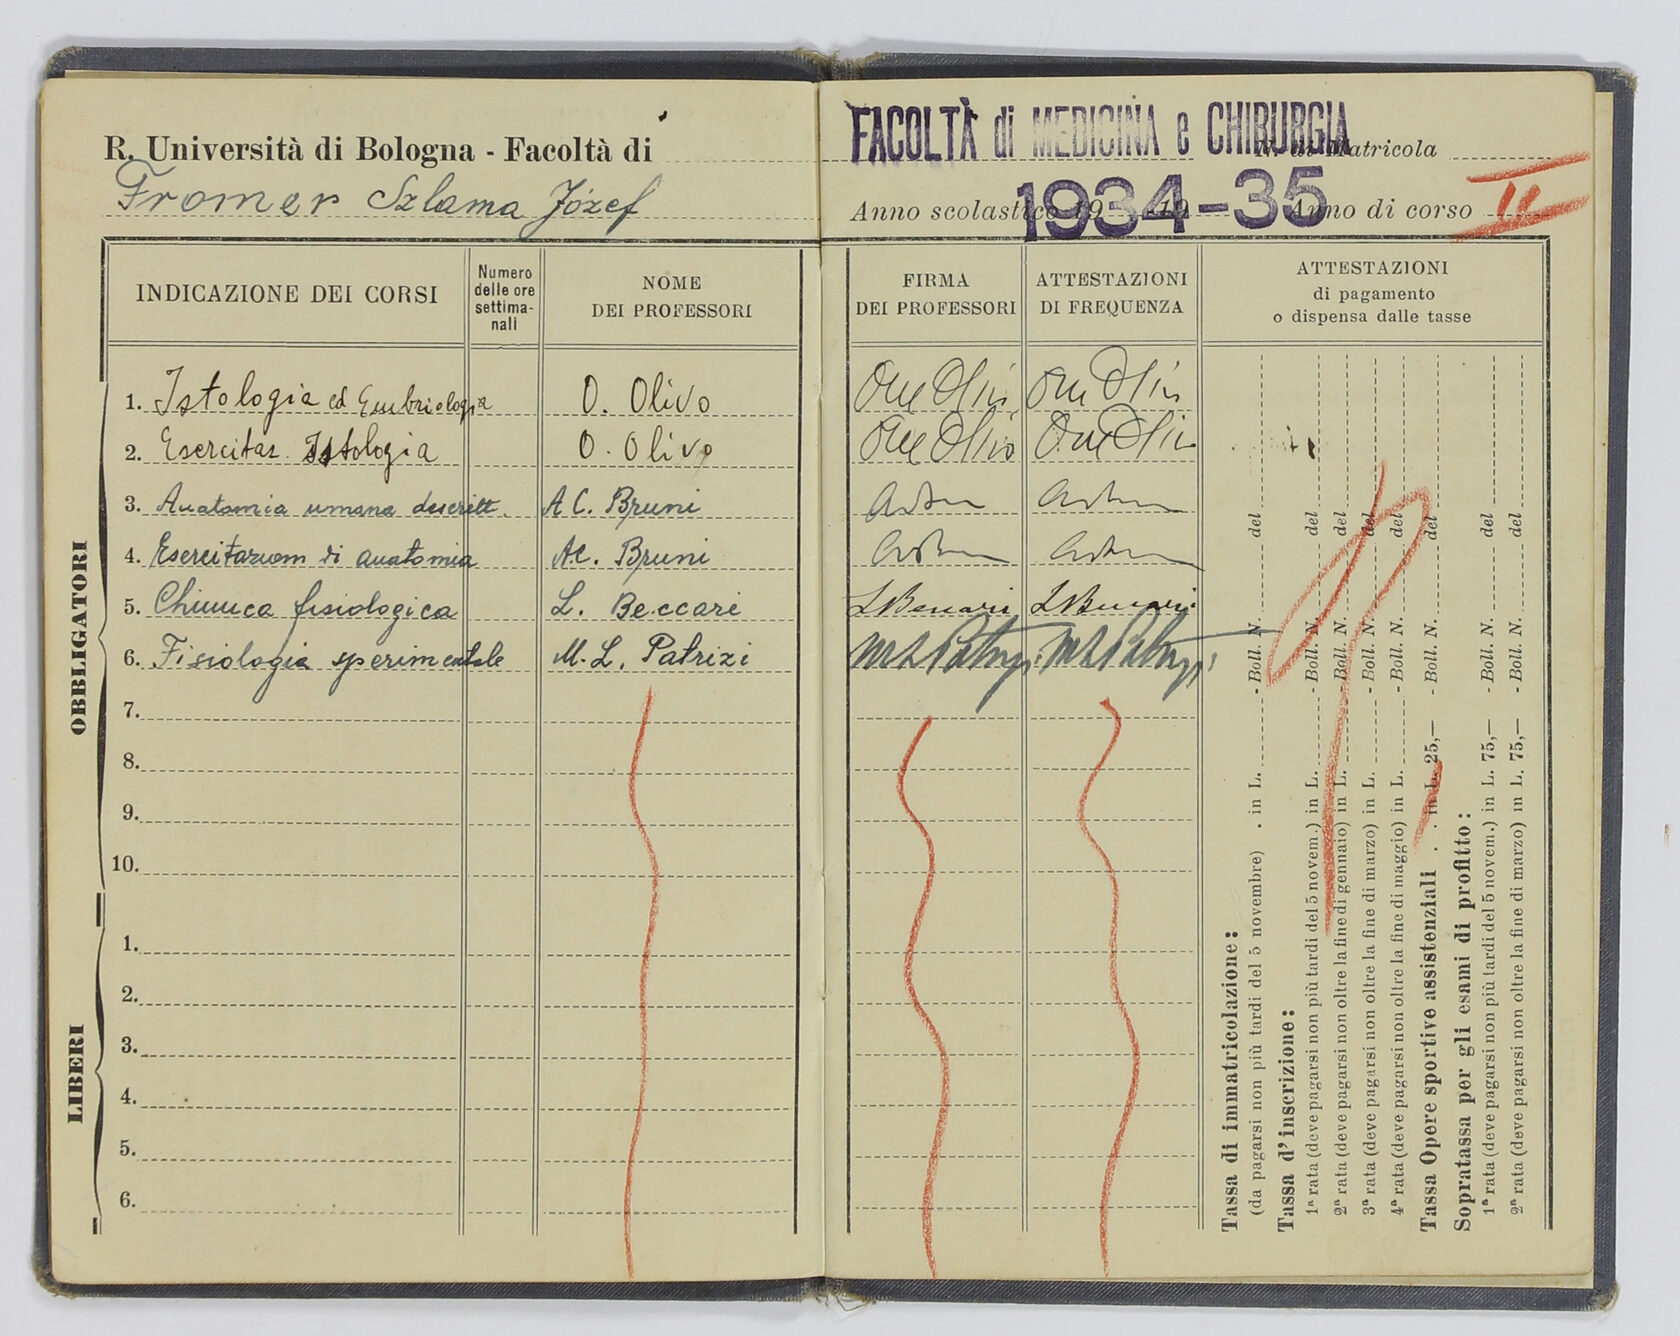 R. Università di Bologna - Facoltà di
FACOLTÀ di MEDICINA e CHIRURGIA
N. di Matricola
Fromer Szlama Józef
Anno scolastico 19 19
1934-35
Anno di corso II
INDICAZIONE DEI CORSI
Numero
delle ore
settima-
nali
NOME
DEI PROFESSORI
FIRMA
DEI PROFESSORI
ATTESTAZIONI
DI FREQUENZA
ATTESTAZIONI
di pagamento
o dispensa dalle tasse
OBBLIGATORI
1. Istologia ed Embriologia O. Olivo
2. Esercitaz. Istologia O. Olivo
3. Anatomia umana descritt. A C. Bruni
4. Esercitazioni di anatomia A.C. Bruni
5. Chimica fisiologica L. Beccari L Beccari L Beccari
6. Fisiologia sperimentale M. L. Patrizi M L Patrizi M L Patrizi
7.
8.
9.
10.
LIBERI
1.
2.
3.
4.
5.
6.
Tassa di immatricolazione:
(da pagarsi non più tardi del 5 novembre) . in L. - Boll. N. del
Tassa d'inscrizione:
1ª rata (deve pagarsi non più tardi del 5 novem.) in L. - Boll. N. del
2ª rata (deve pagarsi non oltre la fine di gennaio) in L. - Boll. N. del
3ª rata (deve pagarsi non oltre la fine di marzo) in L. - Boll. N. del
4ª rata (deve pagarsi non oltre la fine di maggio) in L. - Boll. N. del
Tassa Opere sportive assistenziali . . in L. 25,— - Boll. N. del
Sopratassa per gli esami di profitto:
1ª rata (deve pagarsi non più tardi del 5 novem.) in L. 75,— - Boll. N. del
2ª rata (deve pagarsi non oltre la fine di marzo) in L. 75,— - Boll. N. del